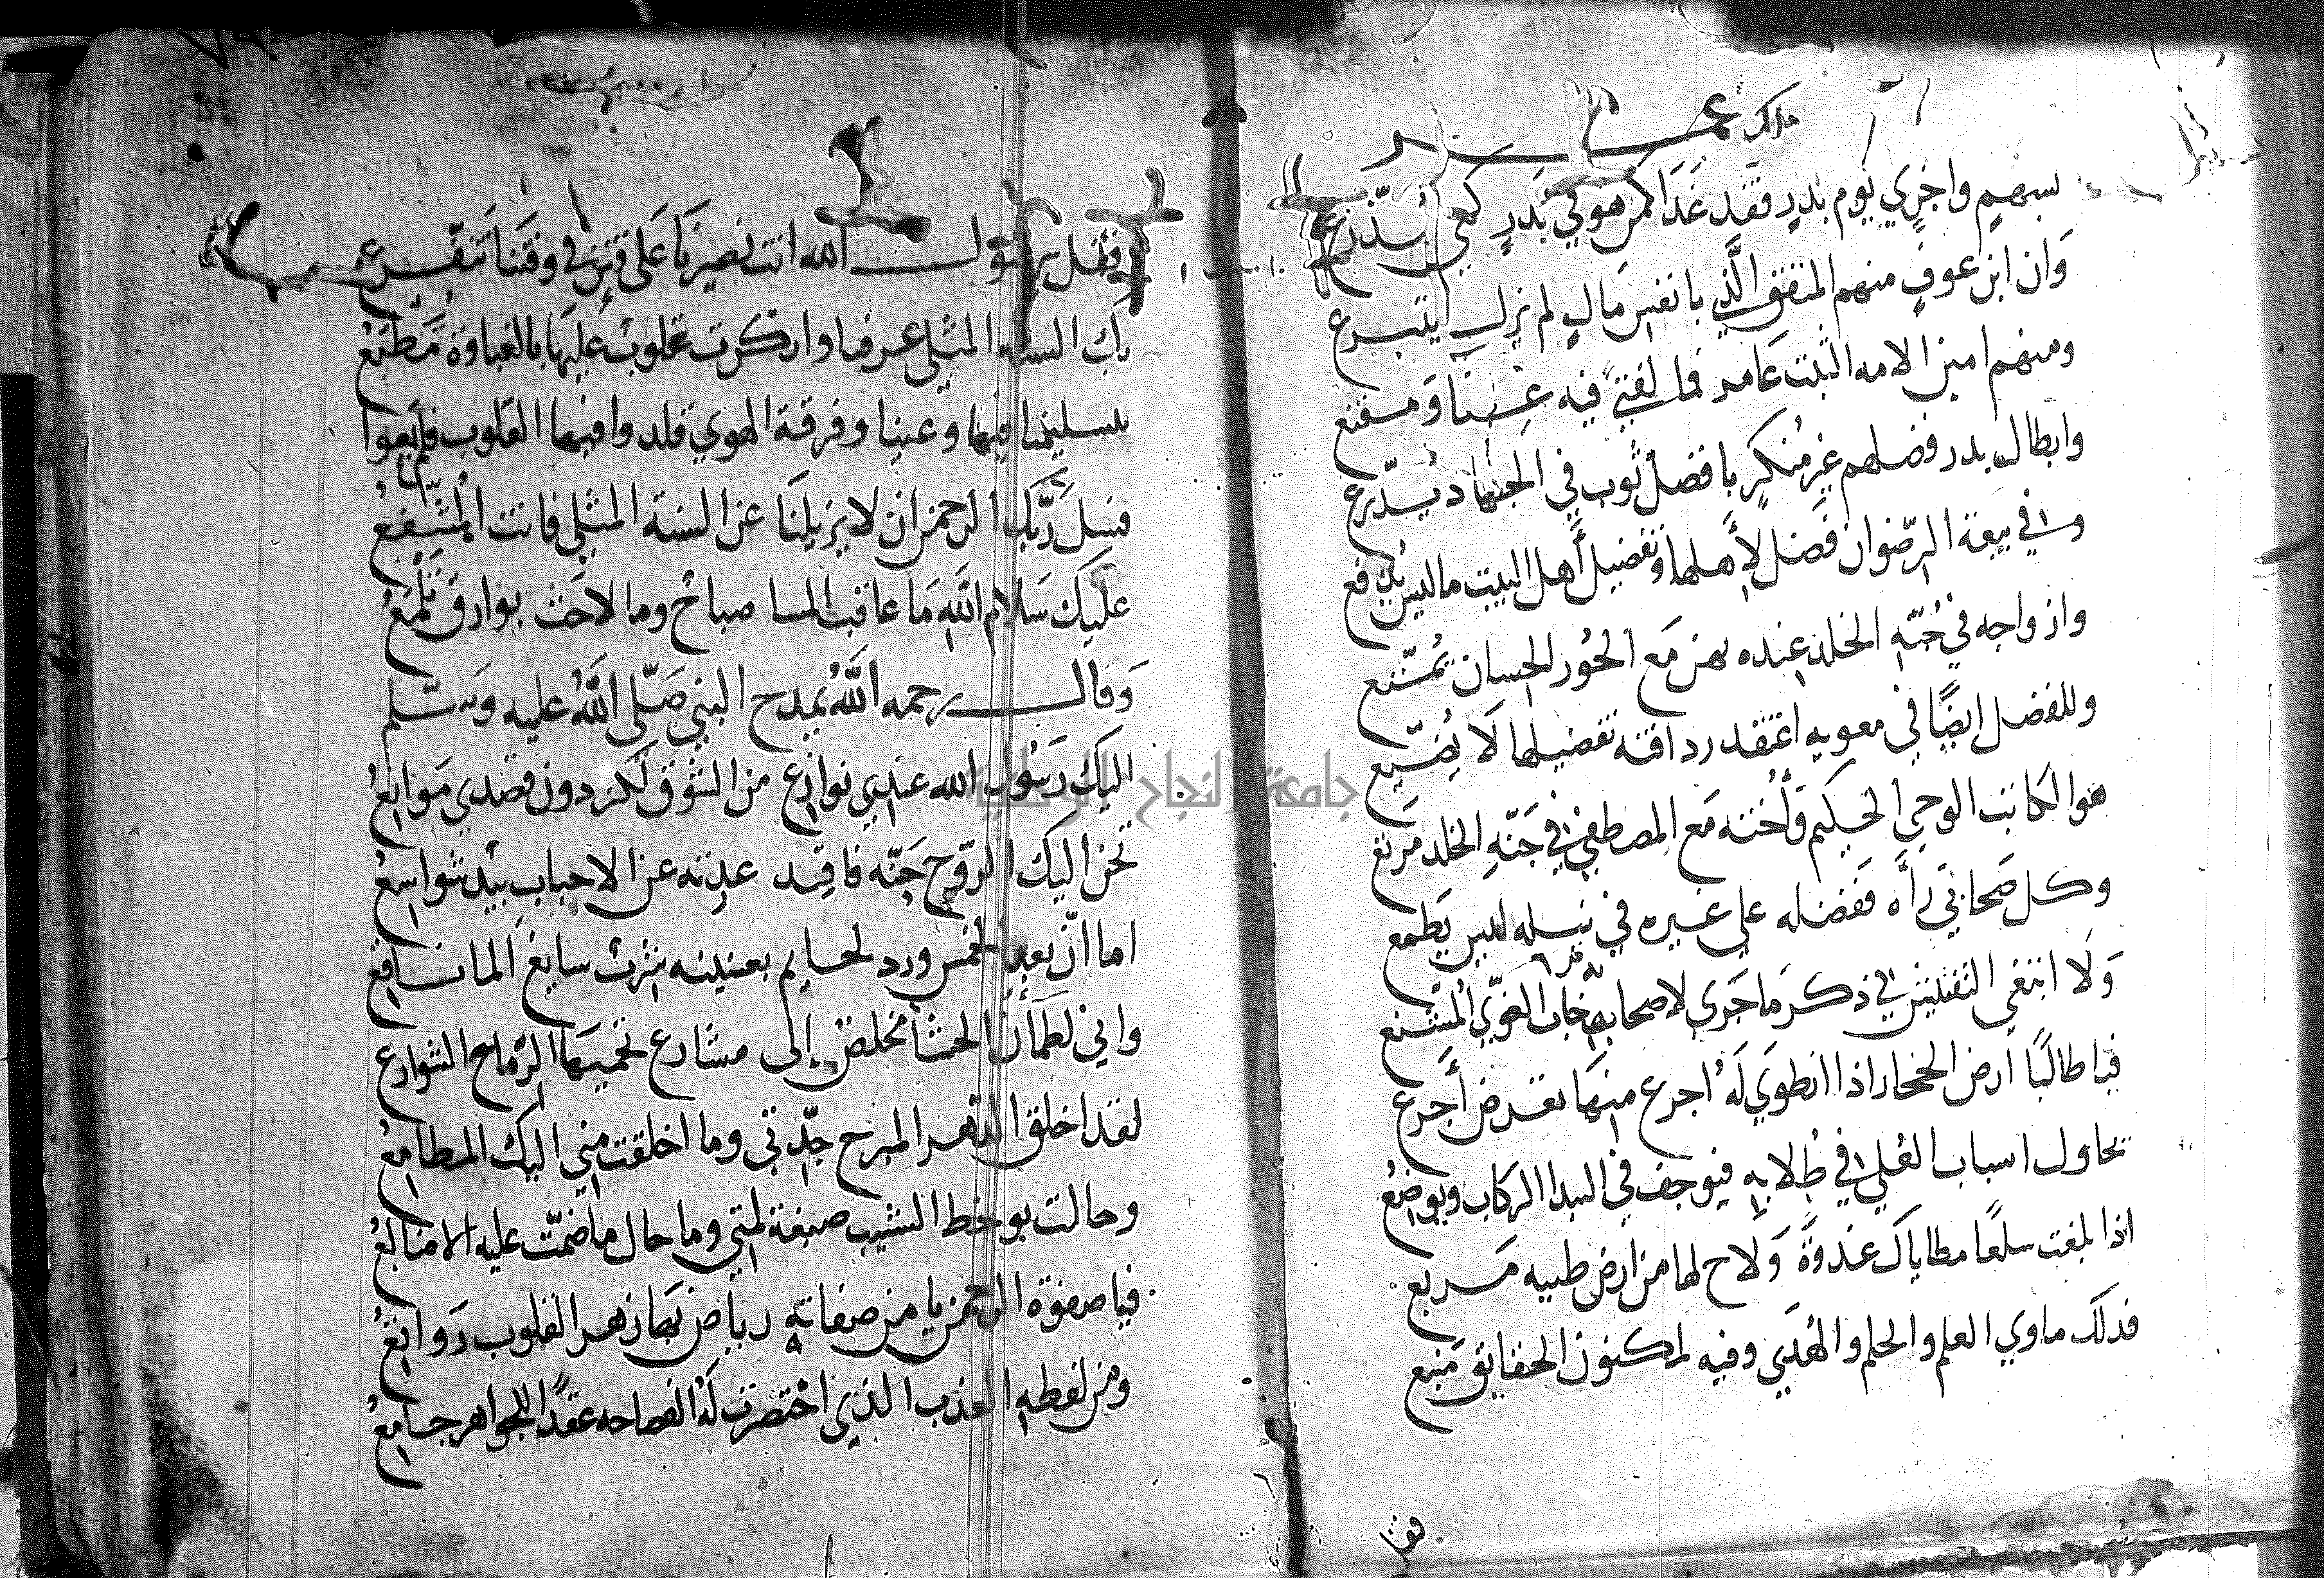 بسهم واجري يوم بدر فقد غدا كمن هو في بدر كمي
وان ابن عوف منهم المنفق الذي بانفس مال لم يزل يتبرع
ومنهم امين الامه الثبت عامر فما لفتى فيه غنا ومقنع
وابطال بدر فضلهم غير منكر بافضل ثوب في الجهاد يدرع
وفي بيعة الرضوان فضل لأهلها وتفضيل أهل البيت ما ليس يدفع
وازواجه في جنة الخلد عنده بهن مع الحور الحسان تمتع
وللفضل ايضًا في معويه اعتقد رد افته تفضيلها لا يضيع
هو الكاتب الوحي الحكيم وأخته مع المصطفى في جنة الخلد مرتع
وكل صحابي رأه ففضله على غيره في نيله ليس يطمع
ولا ابتغي التفتيش في ذكر ما جرى لاصحابه خاب الغوي المشنع
فيا طالبًا ارض الحجاز اذا انطوى له اجرع منها تعرض أجرع
يحاول اسباب العلى في طلابه فيوجف في البيدا الركاب ويوضع
اذا بلغت سلعًا مطاياك غدوة ولاح لها من ارض طيبه مربع
فذلك ماوي العلم والحلم والهدى وفيه لمكنون الحقايق منبع
فقل
فقل يا رسول الله انت نصيرنا على فتن في وقتنا تتفرع
بك السنه المثلى عرفنا وانكرت قلوب عليها بالغباوة مطبع
بتسليمنا فيها وعينا وفرقة الهوى قلد وافيها القلوب فلم يعوا
فسل ربك الرحمن ان لا يزيلنا عن السنة المثلى فانت المشفع
عليك سلام الله ما عاقب المسا صباح وما لاحت بوارق تلمع
وقال رحمه الله يمدح النبي صلى الله عليه وسلم
اليك رسول الله عندي نوازع من الشوق لكن دون قصدي موانع
تحن اليك الروح حنه فاقد عدته عن الاحباب بيد شواسع
اما ان بعد الخمس ورد لحايم بعينيه شرب سايغ الما نافع
واني لظمأن الحشا مخلص الى مشارع تحميها الرماح الشوارع
لقد اخلق الدهر المبرح جدتي وما اخلقت مني اليك المطامع
وحالت بوخط الشيب صبغة لمتي وما حال ما ضمت عليه الاضالع
فيا صفوة الرحمن يا من صفاته رياض بها زهر القلوب روايع
ومن لفظه العذب الذي اختصرت له الفصاحه عقدًا للجواهر جامع